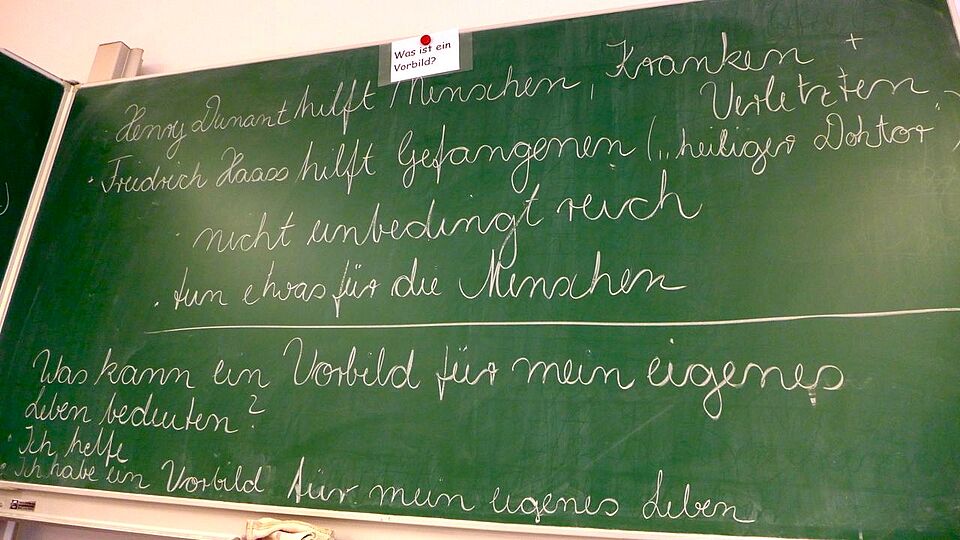 Was ist ein
Vorbild?
· Henry Dunant hilft Menschen, Kranken +
Verletzten
· Friedrich Haass hilft Gefangenen („heiliger Doktor“)
· nicht unbedingt reich
· tun etwas für die Menschen
Was kann ein Vorbild für mein eigenes
Leben bedeuten?
· Ich helfe
· Ich habe ein Vorbild für mein eigenes Leben